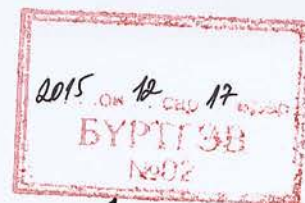 2015 он 12 сар 17 өдөр
БҮРТГЭВ
№02